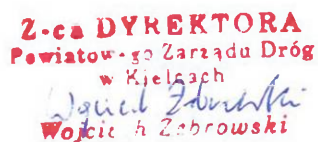 Z-ca DYREKTORA
Powiatowego Zarządu Dróg
w Kielcach
Wojciech Zabrowski
Wojciech Zabrowski